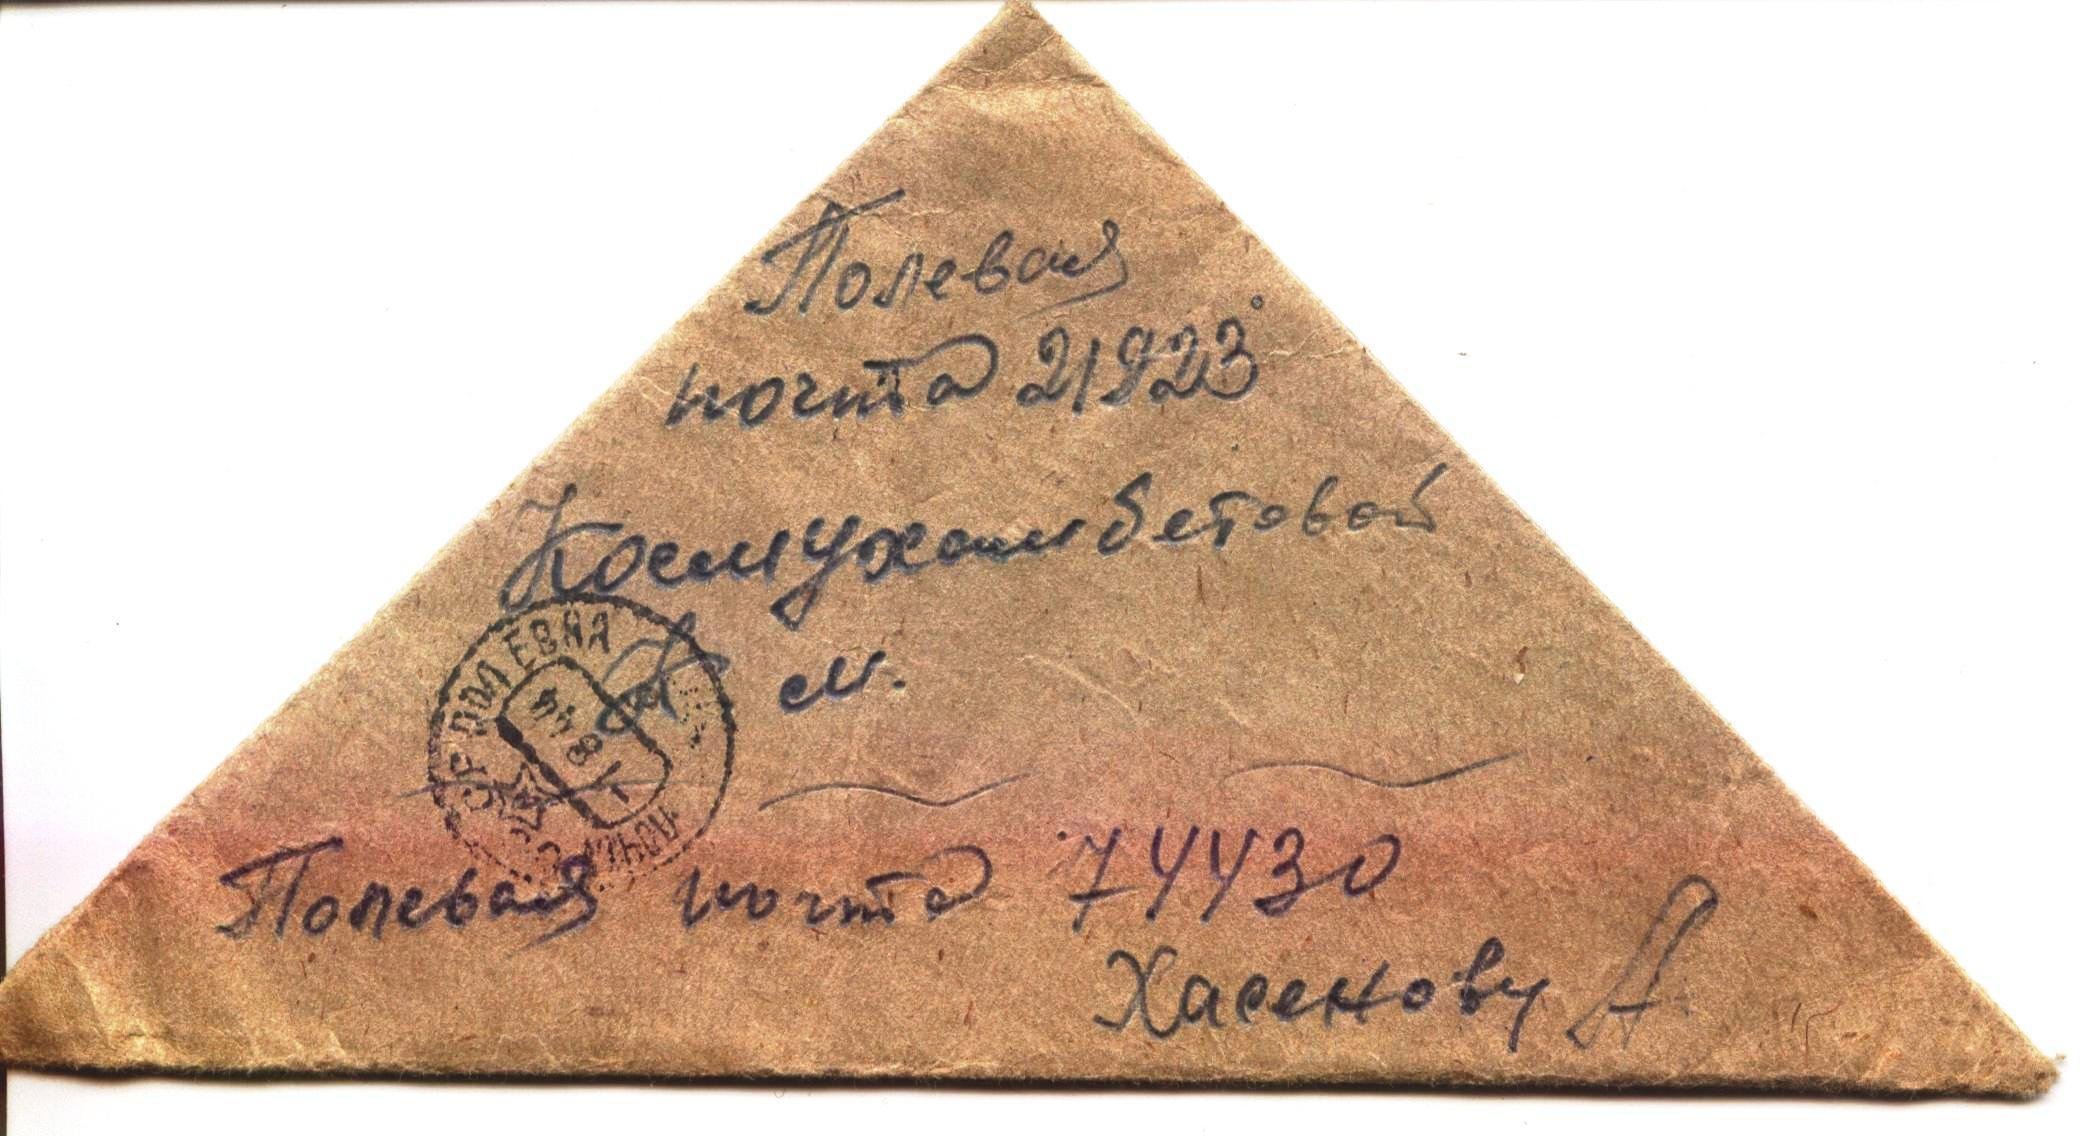 Полевая
почта 21923
Космухамбетовой
м.
СССР ПОЛЕВАЯ
44
8
1
ПОЧТА
Полевая почта 74430
Хасенову А